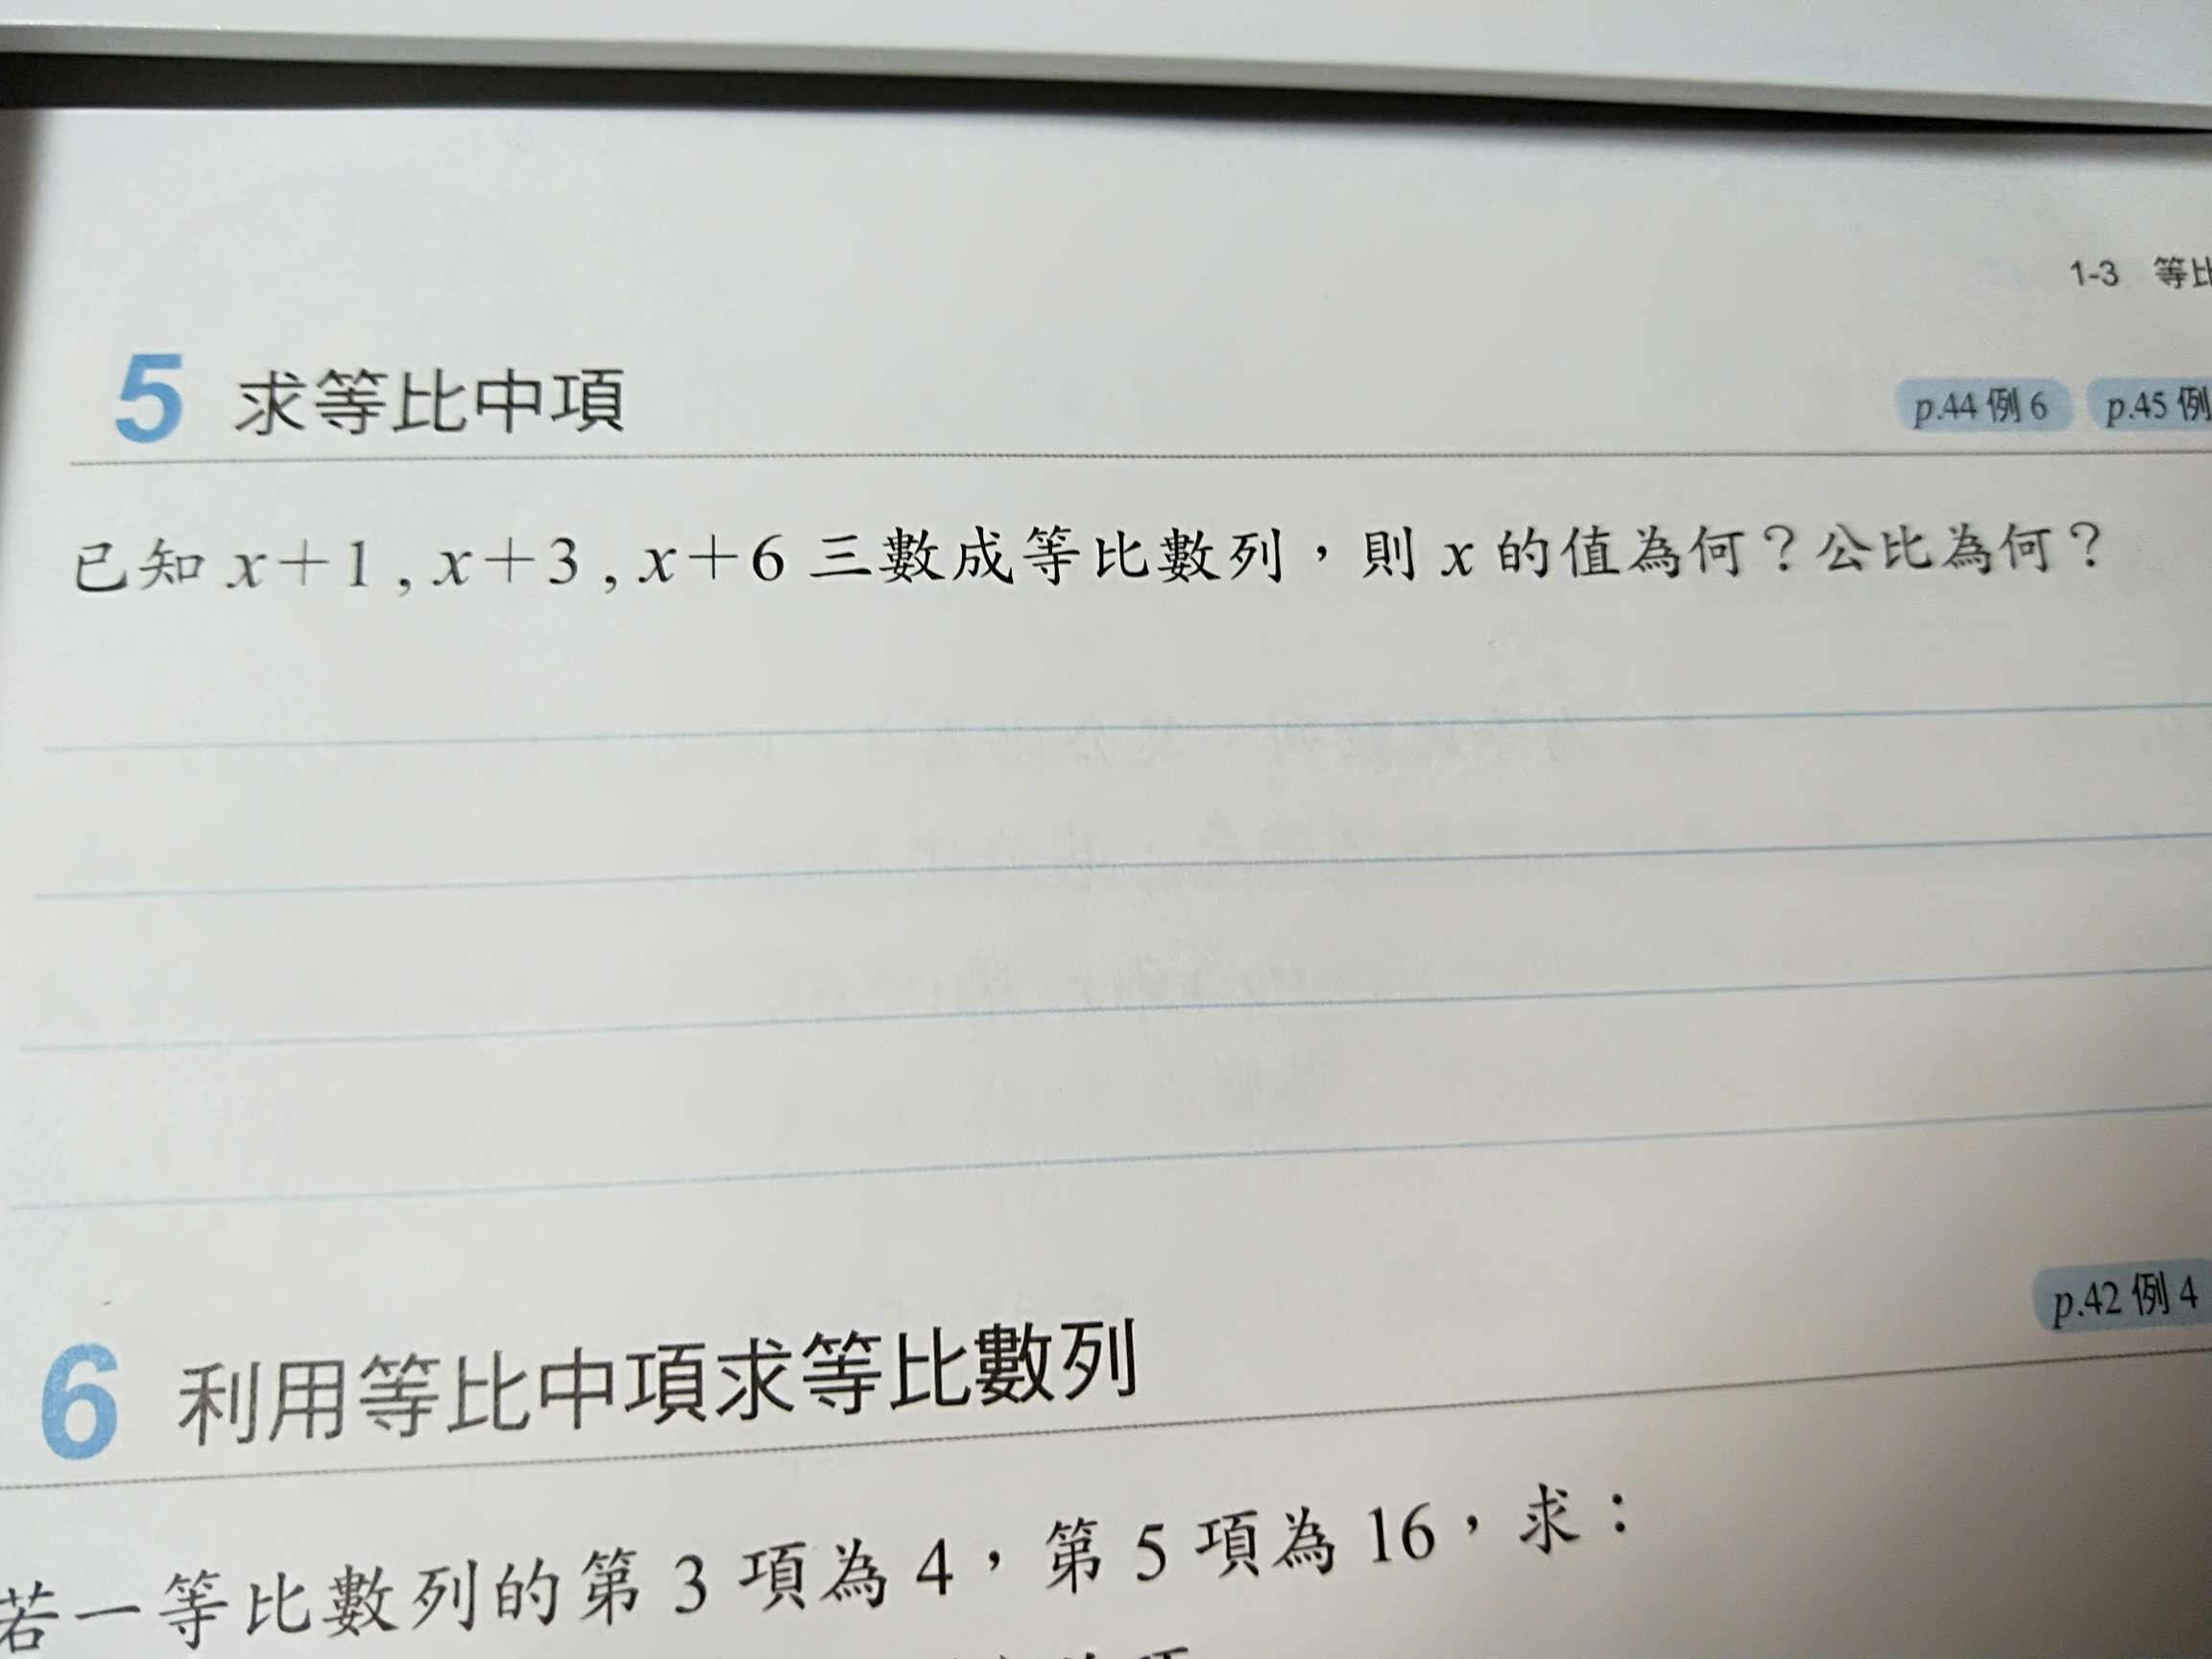 1-3 等比
5 求等比中項
p.44 例 6 p.45 例
已知 x+1 , x+3 , x+6 三數成等比數列，則 x 的值為何？公比為何？
p.42 例 4
6 利用等比中項求等比數列
若一等比數列的第 3 項為 4，第 5 項為 16，求：